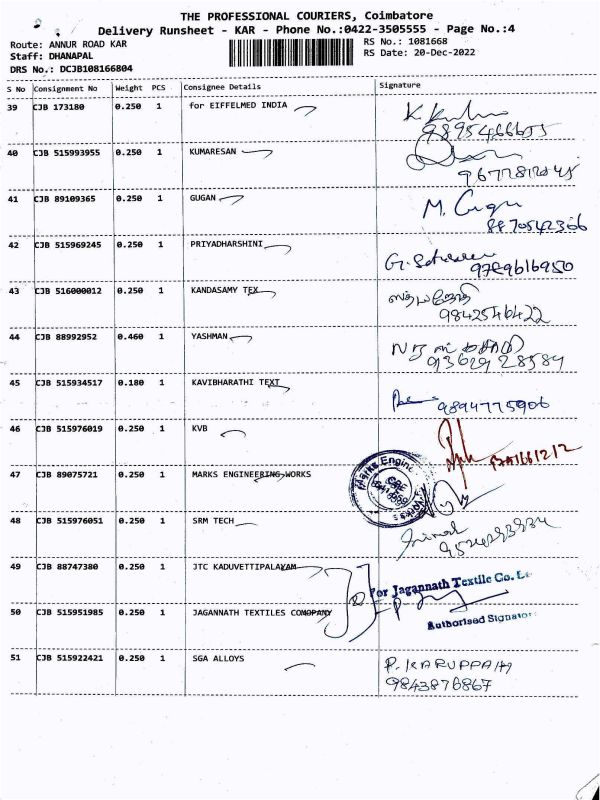 THE PROFESSIONAL COURIERS, Coimbatore
Delivery Runsheet - KAR - Phone No.:0422-3505555 - Page No.:4
Route: ANNUR ROAD KAR
RS No.: 1081668
Staff: DHANAPAL
RS Date: 20-Dec-2022
DRS No.: DCJB108166804
S No Consignment No Weight PCS Consignee Details Signature
39 CJB 173180 0.250 1 for EIFFELMED INDIA
9895466655
40 CJB 515993955 0.250 1 KUMARESAN
41 CJB 89109365 0.250 1 GUGAN M. Gugan
8870542366
42 CJB 515969245 0.250 1 PRIYADHARSHINI
9789616950
43 CJB 516000012 0.250 1 KANDASAMY TEX
9842546422
44 CJB 88992952 0.460 1 YASHMAN
9362928584
45 CJB 515934517 0.180 1 KAVIBHARATHI TEXT 9894775906
46 CJB 515976019 0.250 1 KVB
47 CJB 89075721 0.250 1 MARKS ENGINEERING WORKS
48 CJB 515976051 0.250 1 SRM TECH
49 CJB 88747380 0.250 1 JTC KADUVETTIPALAYAM
For Jagannath Textile Co. L
50 CJB 515951985 0.250 1 JAGANNATH TEXTILES COMOPANY
Authorised Signator
51 CJB 515922421 0.250 1 SGA ALLOYS P. KARUPPAIH
9843876867